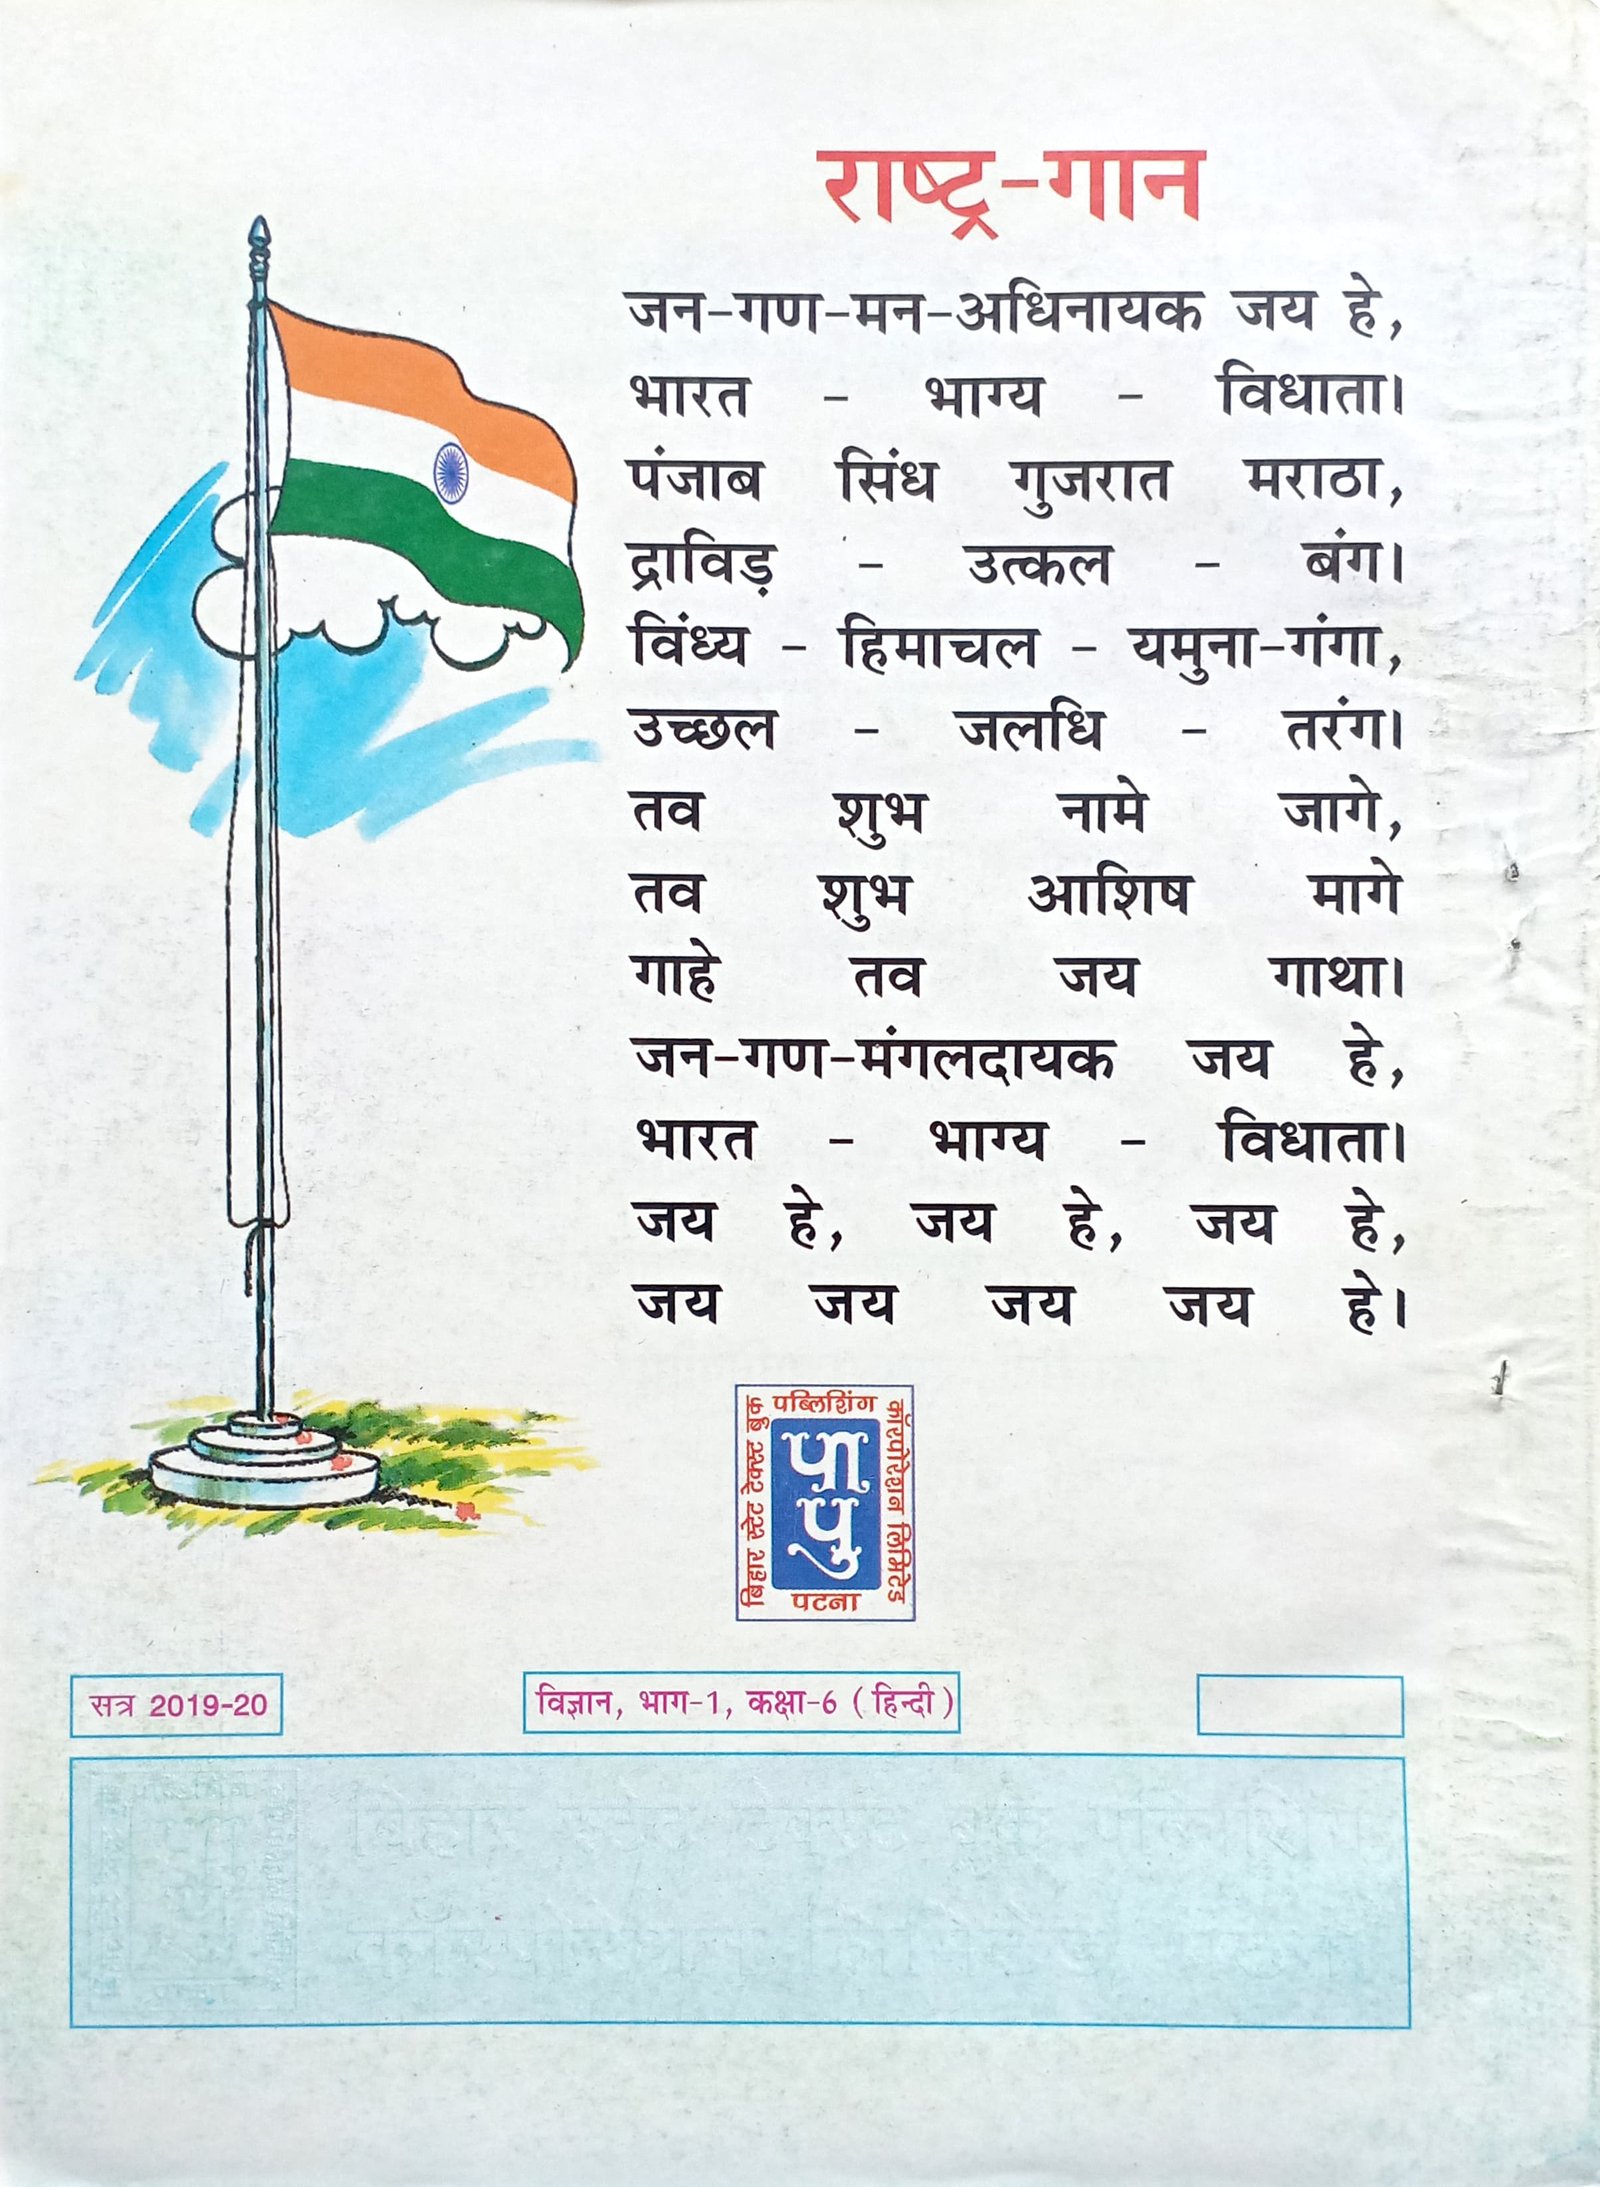 राष्ट्र-गान
जन-गण-मन-अधिनायक जय हे,
भारत - भाग्य - विधाता।
पंजाब सिंध गुजरात मराठा,
द्राविड़ - उत्कल - बंग।
विंध्य - हिमाचल - यमुना-गंगा,
उच्छल - जलधि - तरंग।
तव शुभ नामे जागे,
तव शुभ आशिष मागे
गाहे तव जय गाथा।
जन-गण-मंगलदायक जय हे,
भारत - भाग्य - विधाता।
जय हे, जय हे, जय हे,
जय जय जय जय हे।
बिहार स्टेट टेक्स्ट बुक
पब्लिशिंग
कॉरपोरेशन लिमिटेड
पा
पु
पटना
सत्र 2019-20
विज्ञान, भाग-1, कक्षा-6 ( हिन्दी )